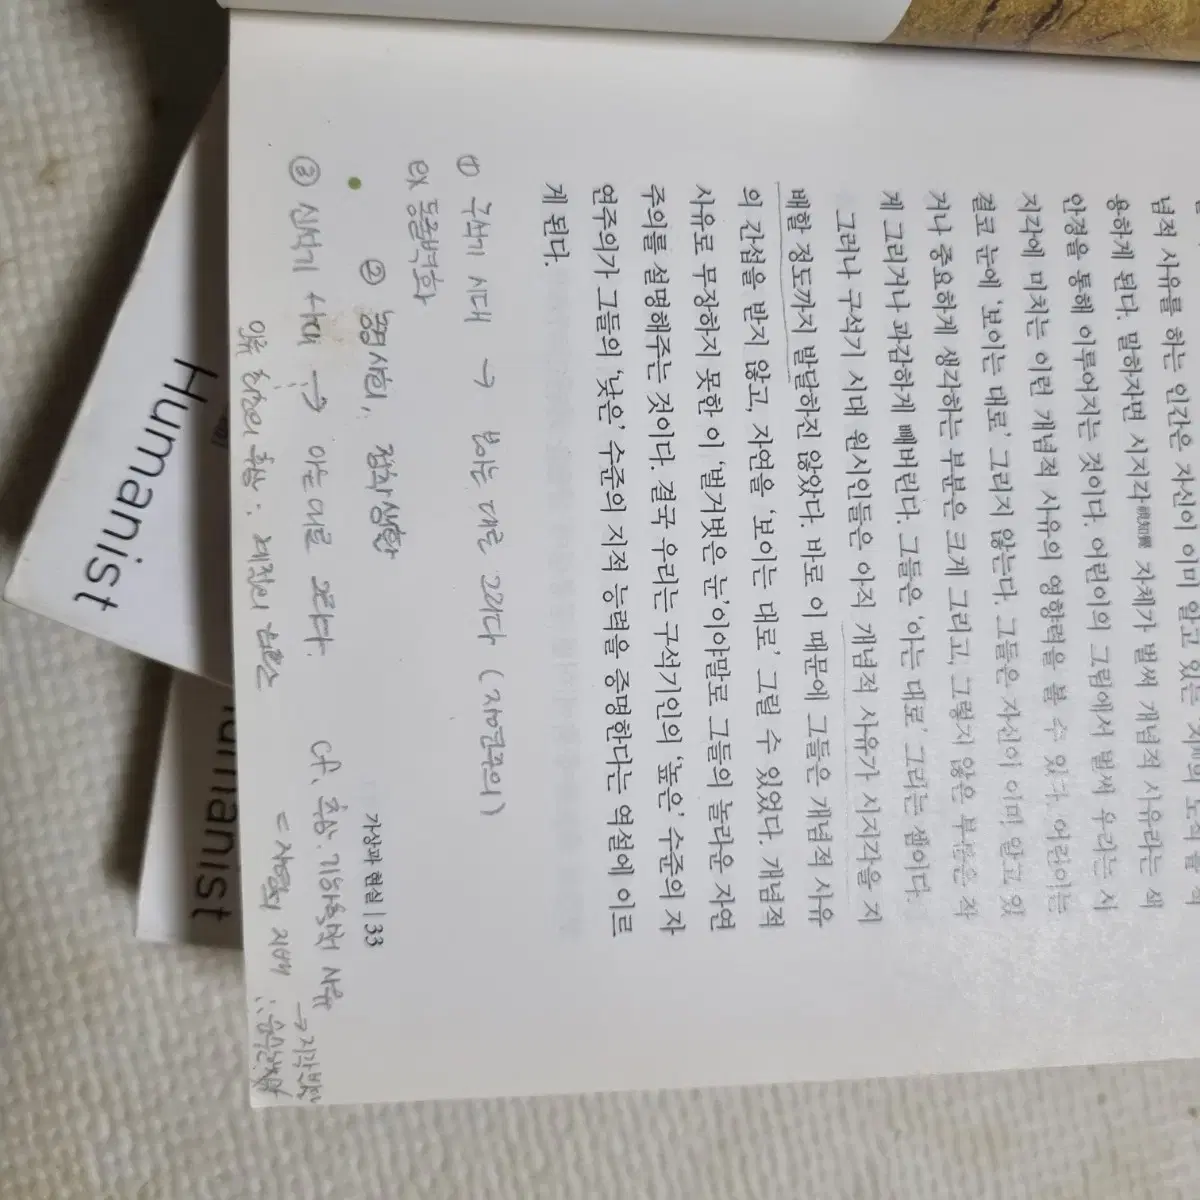 념적 사유를 하는 인간은 자신이 이미 알고 있는
용하게 된다. 말하자면 시지각視知覺 자체가 벌써 개념적 사유라는 색
안경을 통해 이루어지는 것이다. 어린이의 그림에서 벌써 우리는 시
지각에 미치는 이런 개념적 사유의 영향력을 볼 수 있다. 어린이는
결코 눈에 '보이는 대로' 그리지 않는다. 그들은 자신이 이미 알고 있
거나 중요하게 생각하는 부분은 크게 그리고, 그렇지 않은 부분은 작
게 그리거나 과감하게 빼버린다. 그들은 '아는 대로' 그리는 셈이다.
그러나 구석기 시대 원시인들은 아직 개념적 사유가 시지각을 지
배할 정도까지 발달하진 않았다. 바로 이 때문에 그들은 개념적 사유
의 간섭을 받지 않고, 자연을 '보이는 대로' 그릴 수 있었다. 개념적
사유로 무장하지 못한 이 '벌거벗은 눈'이야말로 그들의 놀라운 자연
주의를 설명해주는 것이다. 결국 우리는 구석기인의 '높은' 수준의 자
연주의가 그들의 '낮은' 수준의 지적 능력을 증명한다는 역설에 이르
게 된다.
① 구석기 시대 → 보이는 대로 그리다 (자연주의)
ex 동굴벽화
② 농경사회, 정착생활
③ 신석기 시대 → 아는 대로 그리다.
cf. 추상·기하학적 사유
인류 최초의 추상:
가상과 현실 | 33
Humanist
umanist